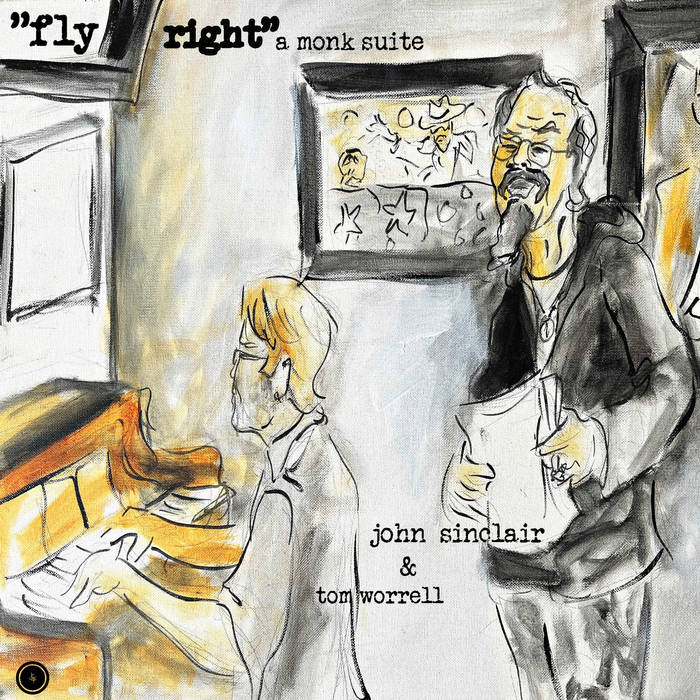 ”fly right” a monk suite
john sinclair
&
tom worrell